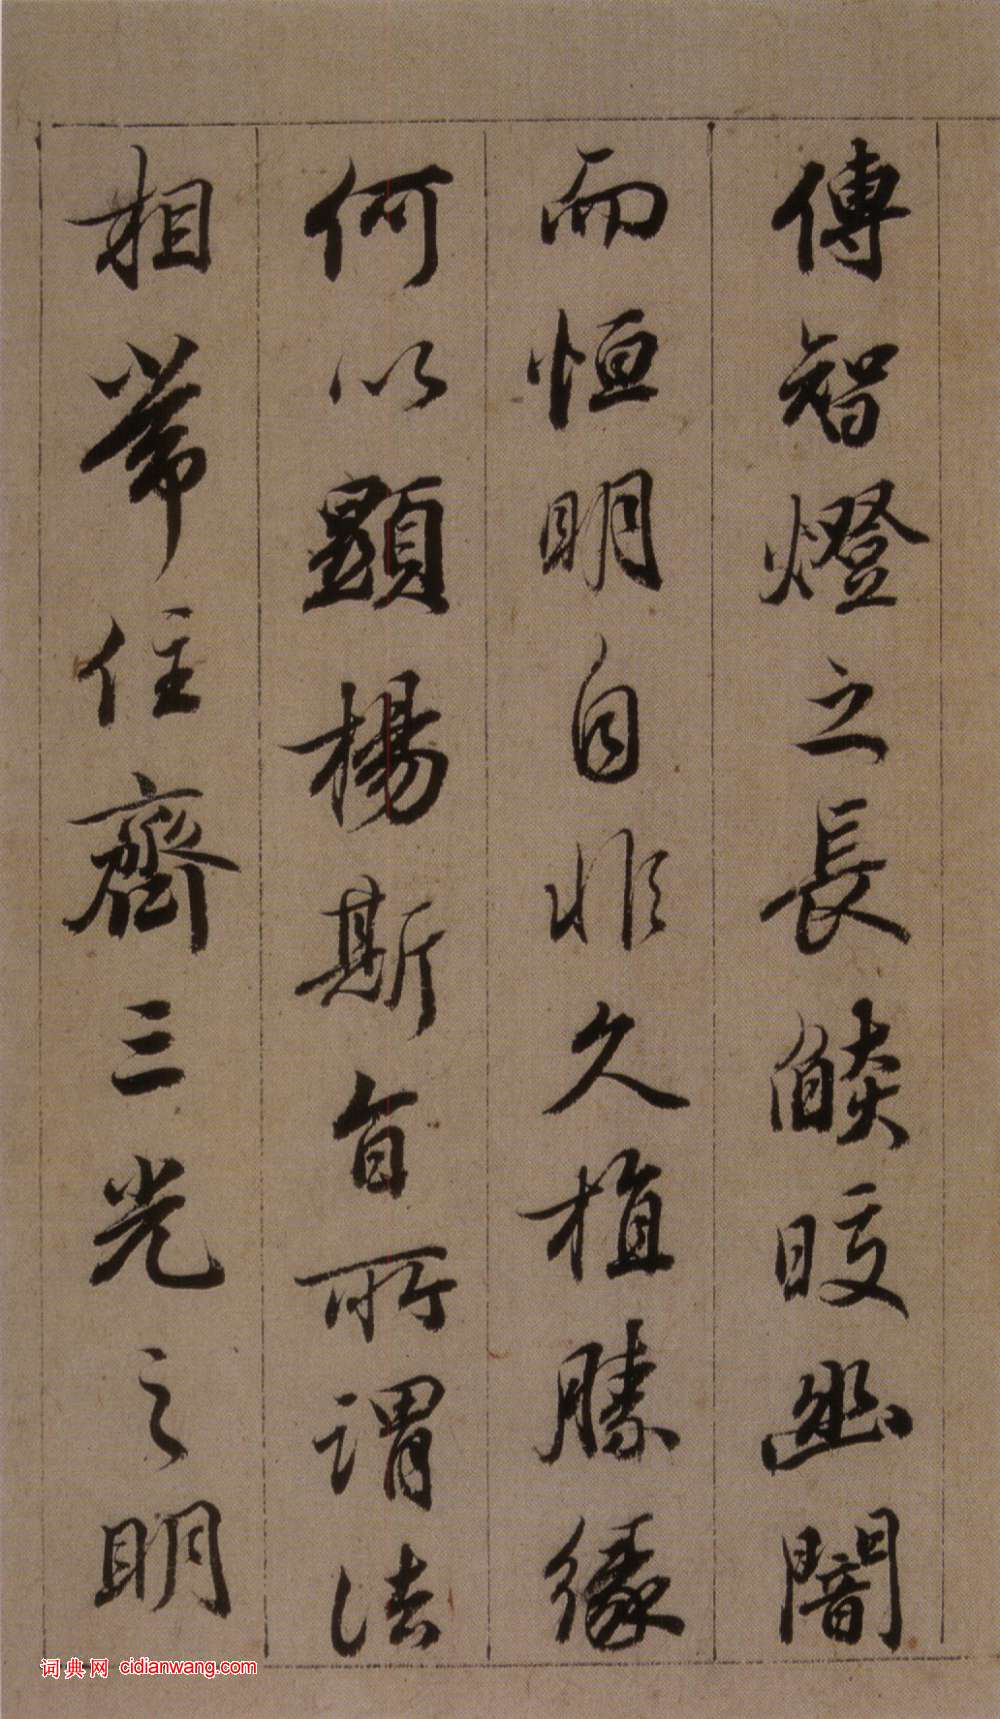 傳智燈之長燄皎幽闇
而恒明自非久植勝緣
何以顯楊斯旨所謂法
相常住齊三光之明
词典网 cidianwang.com